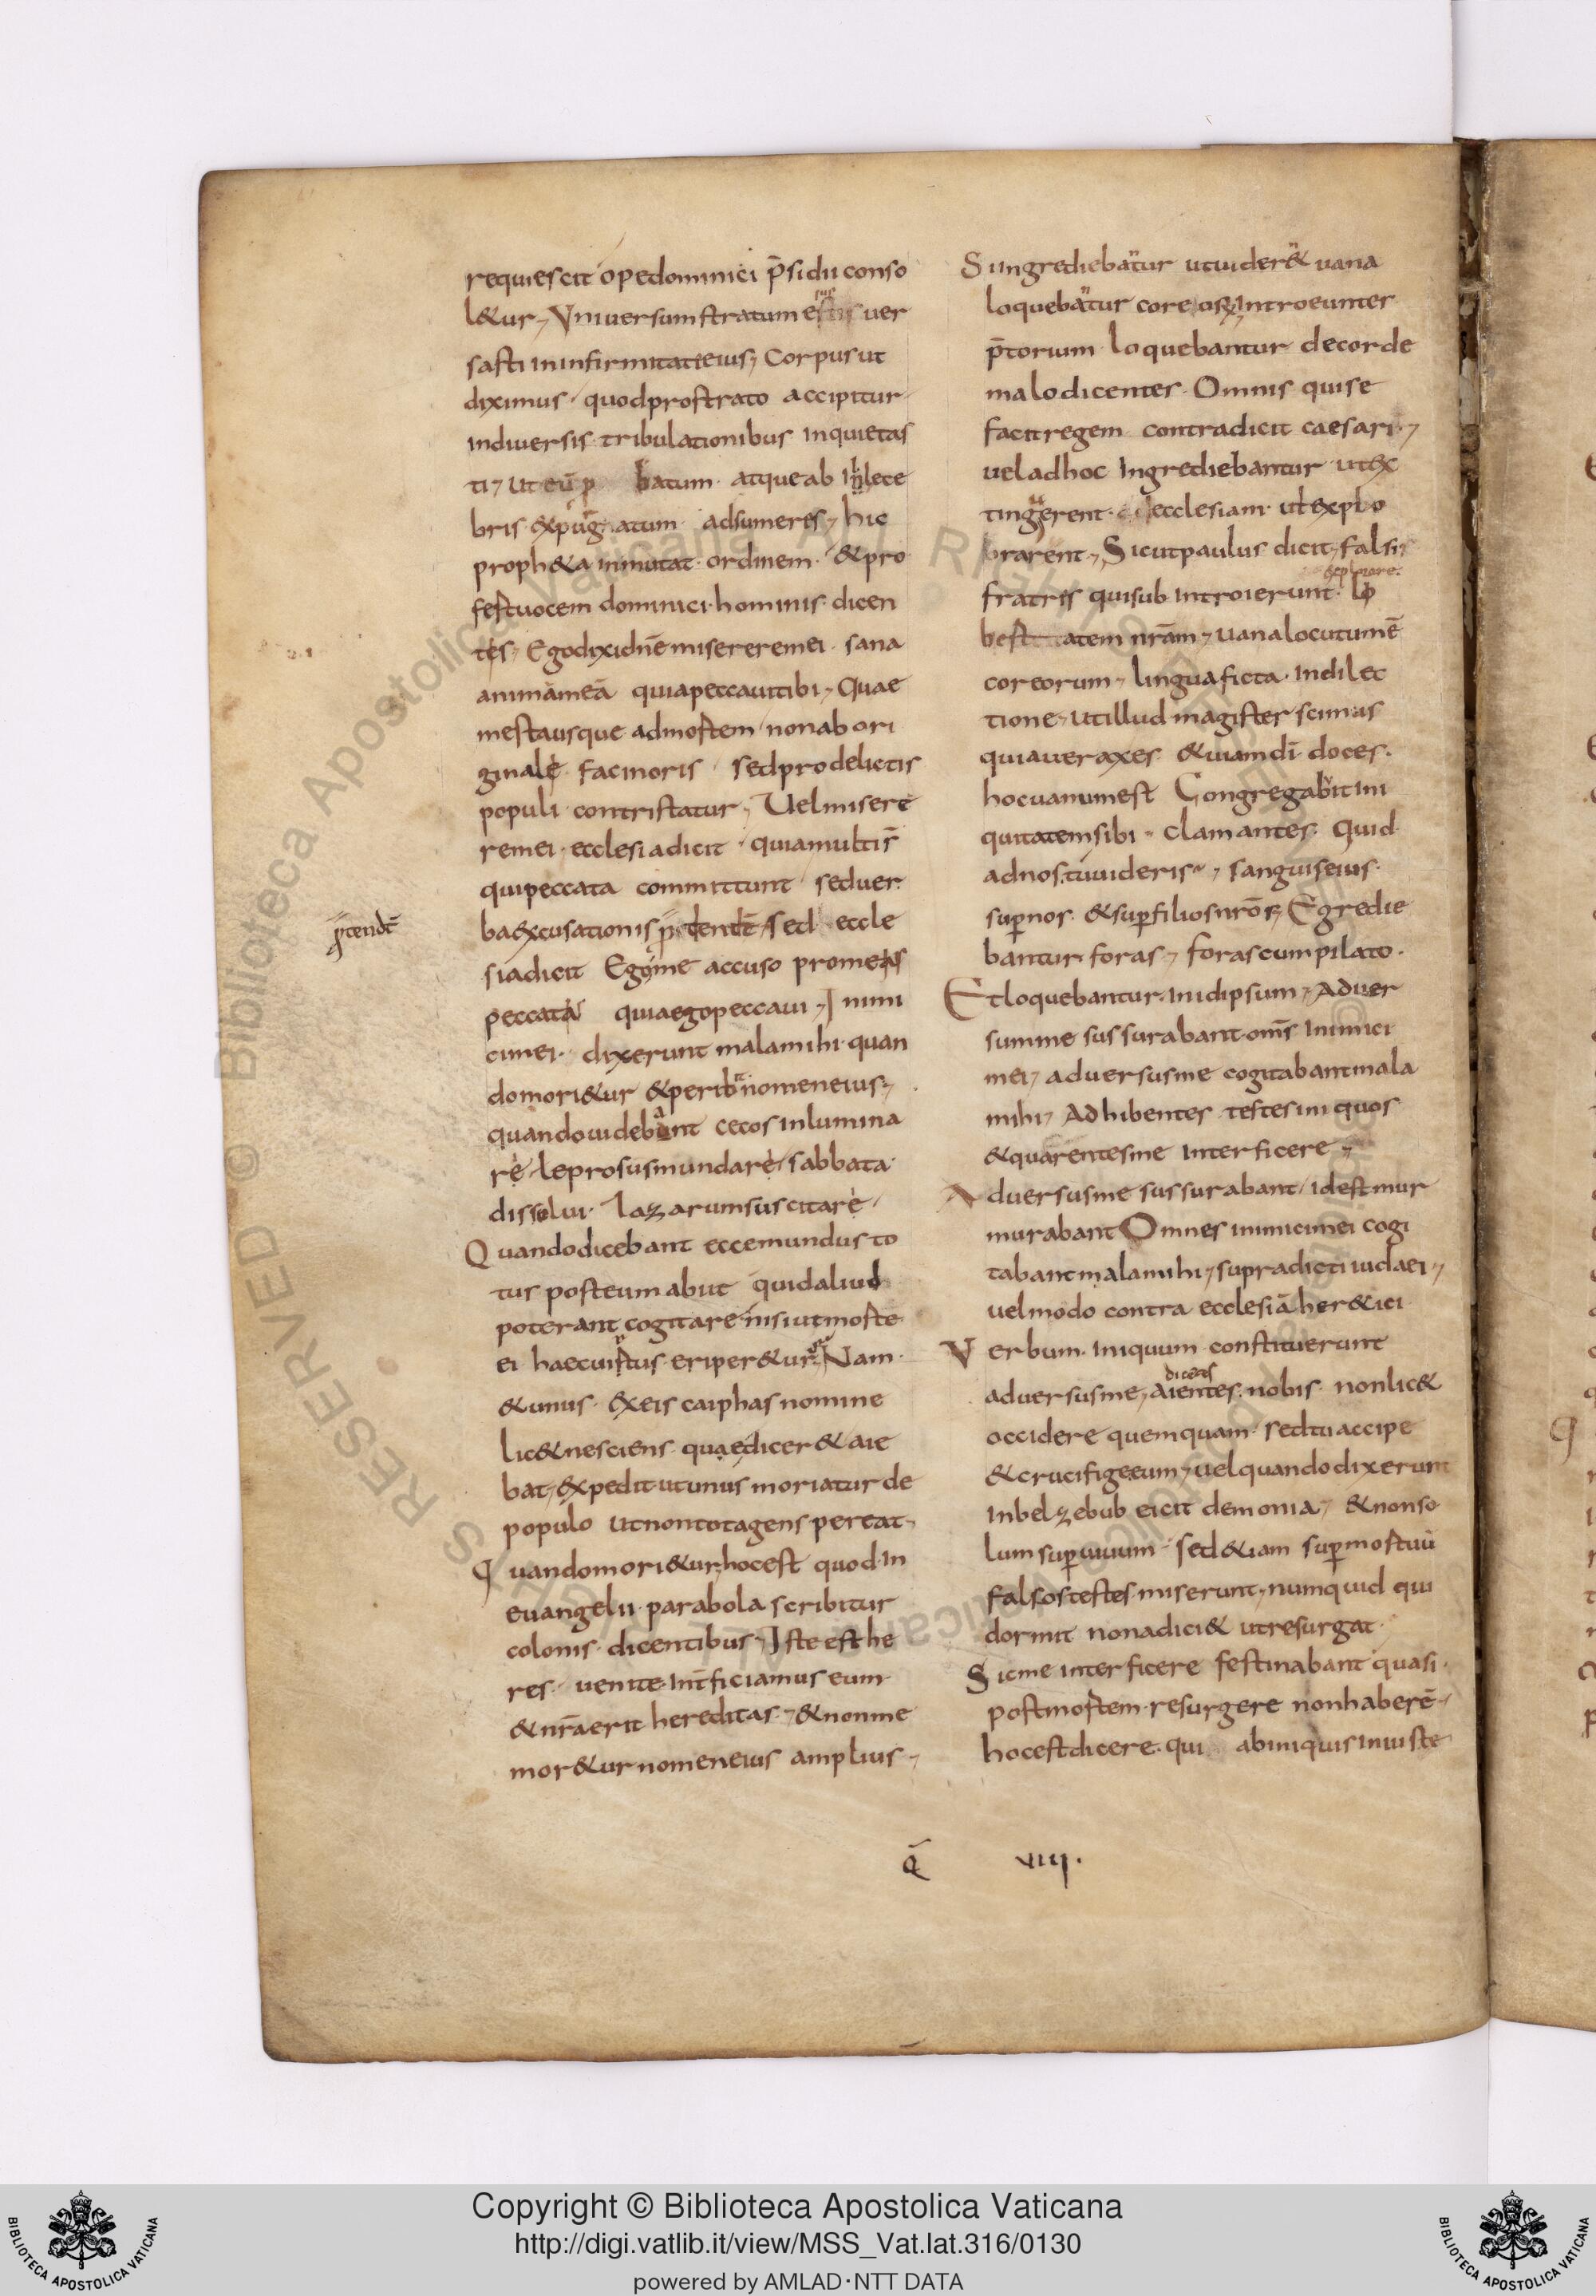 requiescit opedominici p̄sidii conso
l&ur, Uniuersum stratum eius uer
sasti ininfirmitateeius, Corpus ut
diximus quodprostrato accipitur
indiuersis tribulationibus inquietas
ti, ut batum atqueab inlece
bris adsumeres, hic
proph&a inmutat ordinem &pro
fest uocem dominici hominis dicen
tes, Egodixidn̄e misereremei sana
animāmeā quiapeccauitibi, Quae
mestausque admortem nonab ori
ginale facinoris sedprodelictis
populi contristatur, Uelmisere
remei ecclesiadicit quiamulti
quipeccata committunt seduer
baexcusationis p̄tendē sed eccle
siadicit Ego me accuso promeis
peccata quiaegopeccaui, Inimi
cimei dixerunt malamihi quan
domori&ur &peribit nomeneius,
quandouidebant cecos inlumina
re leprosusmundare sabbata
dissolui lazarumsuscitare
Quandodicebant eccemundusto
tus posteumabiit quidaliud
poterant cogitare nisiutmorte
ei haecuirtus eriper&ur Nam
&unus exeis caiphas nomine
lic&nesciens quaedicer& aie
bat, expedit utunus moriatur de
populo utnontotagens pereat
Quandomori&ur, hocest quod in
euangelii parabola scribitur
colonis dicentibus, Iste est he
res uenite Int̄ficiamus eum
&nr̄aerit hereditas, &nonme
mor&ur nomeneius amplius,
p̄tendt̄
Siingrediebatur utuider& uana
loquebatur cor eorum, Introeuntes
p̄torium loquebantur decorde
malodicentes Omnis quise
facitregem contradicit caesari,
ueladhoc Ingrediebantur utex
tingerent ecclesiam utexplo
brarent, Sicutpaulus dicit, falsi
fratris quisub Introierunt
explorare
atem nr̄am, uanalocutumē
coreorum, linguaficta Indilec
tione, utillud magister scimus
quiaueraxes &uiamdī doces
hocuanumest Congregabit ini
quitatemsibi clamantes Quid
adnos tuuideris, sanguiseius
supnos &supfiliosnrōs, Egredie
bantur foras, forascumpilato
Etloquebantur Inidipsum, Aduer
summe sussurabant om̄s Inimici
mei, aduersusme cogitabantmala
mihi, Adhibentes testes iniquos
&quarentesme Interficere,
Aduersusme sussurabant, idestmur
murabant Omnes inimicimei cogi
tabantmalamihi, supradicti iudaei,
uelmodo contra ecclesiā her&ici
Uerbum Iniquum constituerunt
dicentes
aduersusme, aientes nobis nonlic&
occidere quemquam sedtuaccipe
&crucifigeeum, uelquandodixerunt
Inbelzebub eicit demonia, &nonso
lumsupuiuum sed&iam supmortuū
falsostestes miserunt, numquid qui
dormit nonadici& utresurgat
Sicme interficere festinabant quasi
postmortem resurgere nonhaberē
hocestdicere qui abiniquisiniuste
Q̄ VIIII.
Copyright © Biblioteca Apostolica Vaticana
http://digi.vatlib.it/view/MSS_Vat.lat.316/0130
powered by AMLAD·NTT DATA
BIBLIOTECA APOSTOLICA VATICANA
BIBLIOTECA APOSTOLICA VATICANA